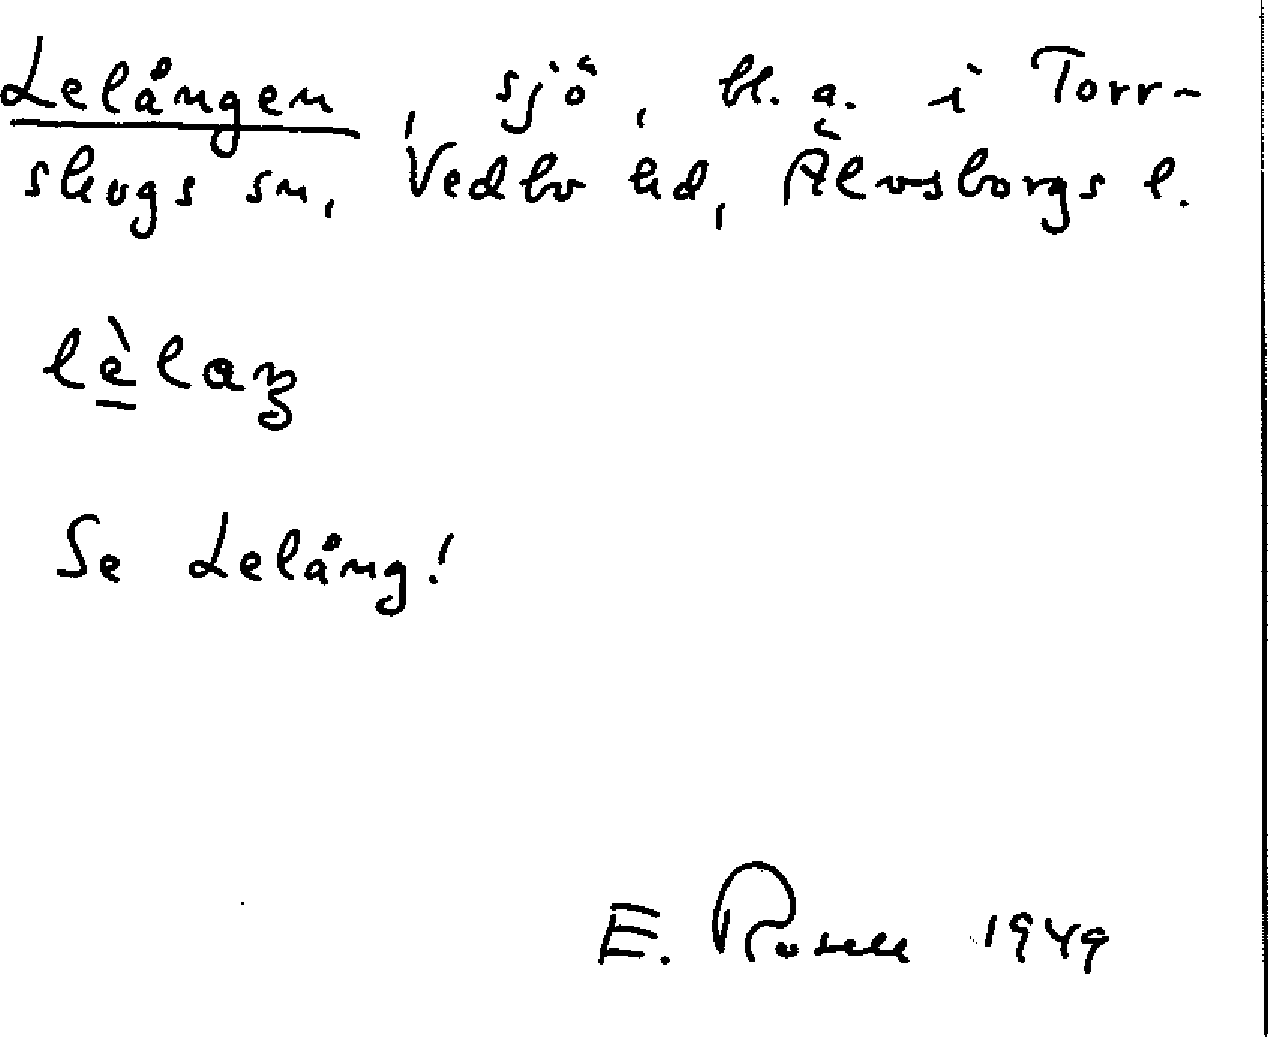 Lelången, sjö, bl. a. i Torr-
skogs sn, Vedbo hd, Älvsborgs l.
lèlaŋ
Se Lelång!
E. Rosell 1949